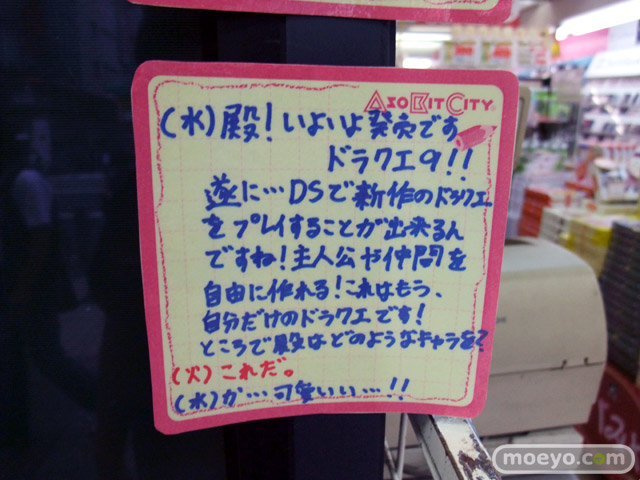 AsoBitCity
(水)殿！いよいよ発売です
ドラクエ9!!
遂に…DSで新作のドラクエ
をプレイすることが出来るん
ですね！主人公や仲間を
自由に作れる！これはもう、
自分だけのドラクエです！
ところで殿はどのようなキャラを？
(火)これだ。
(水)か…可愛いい…!!
moeyo.com